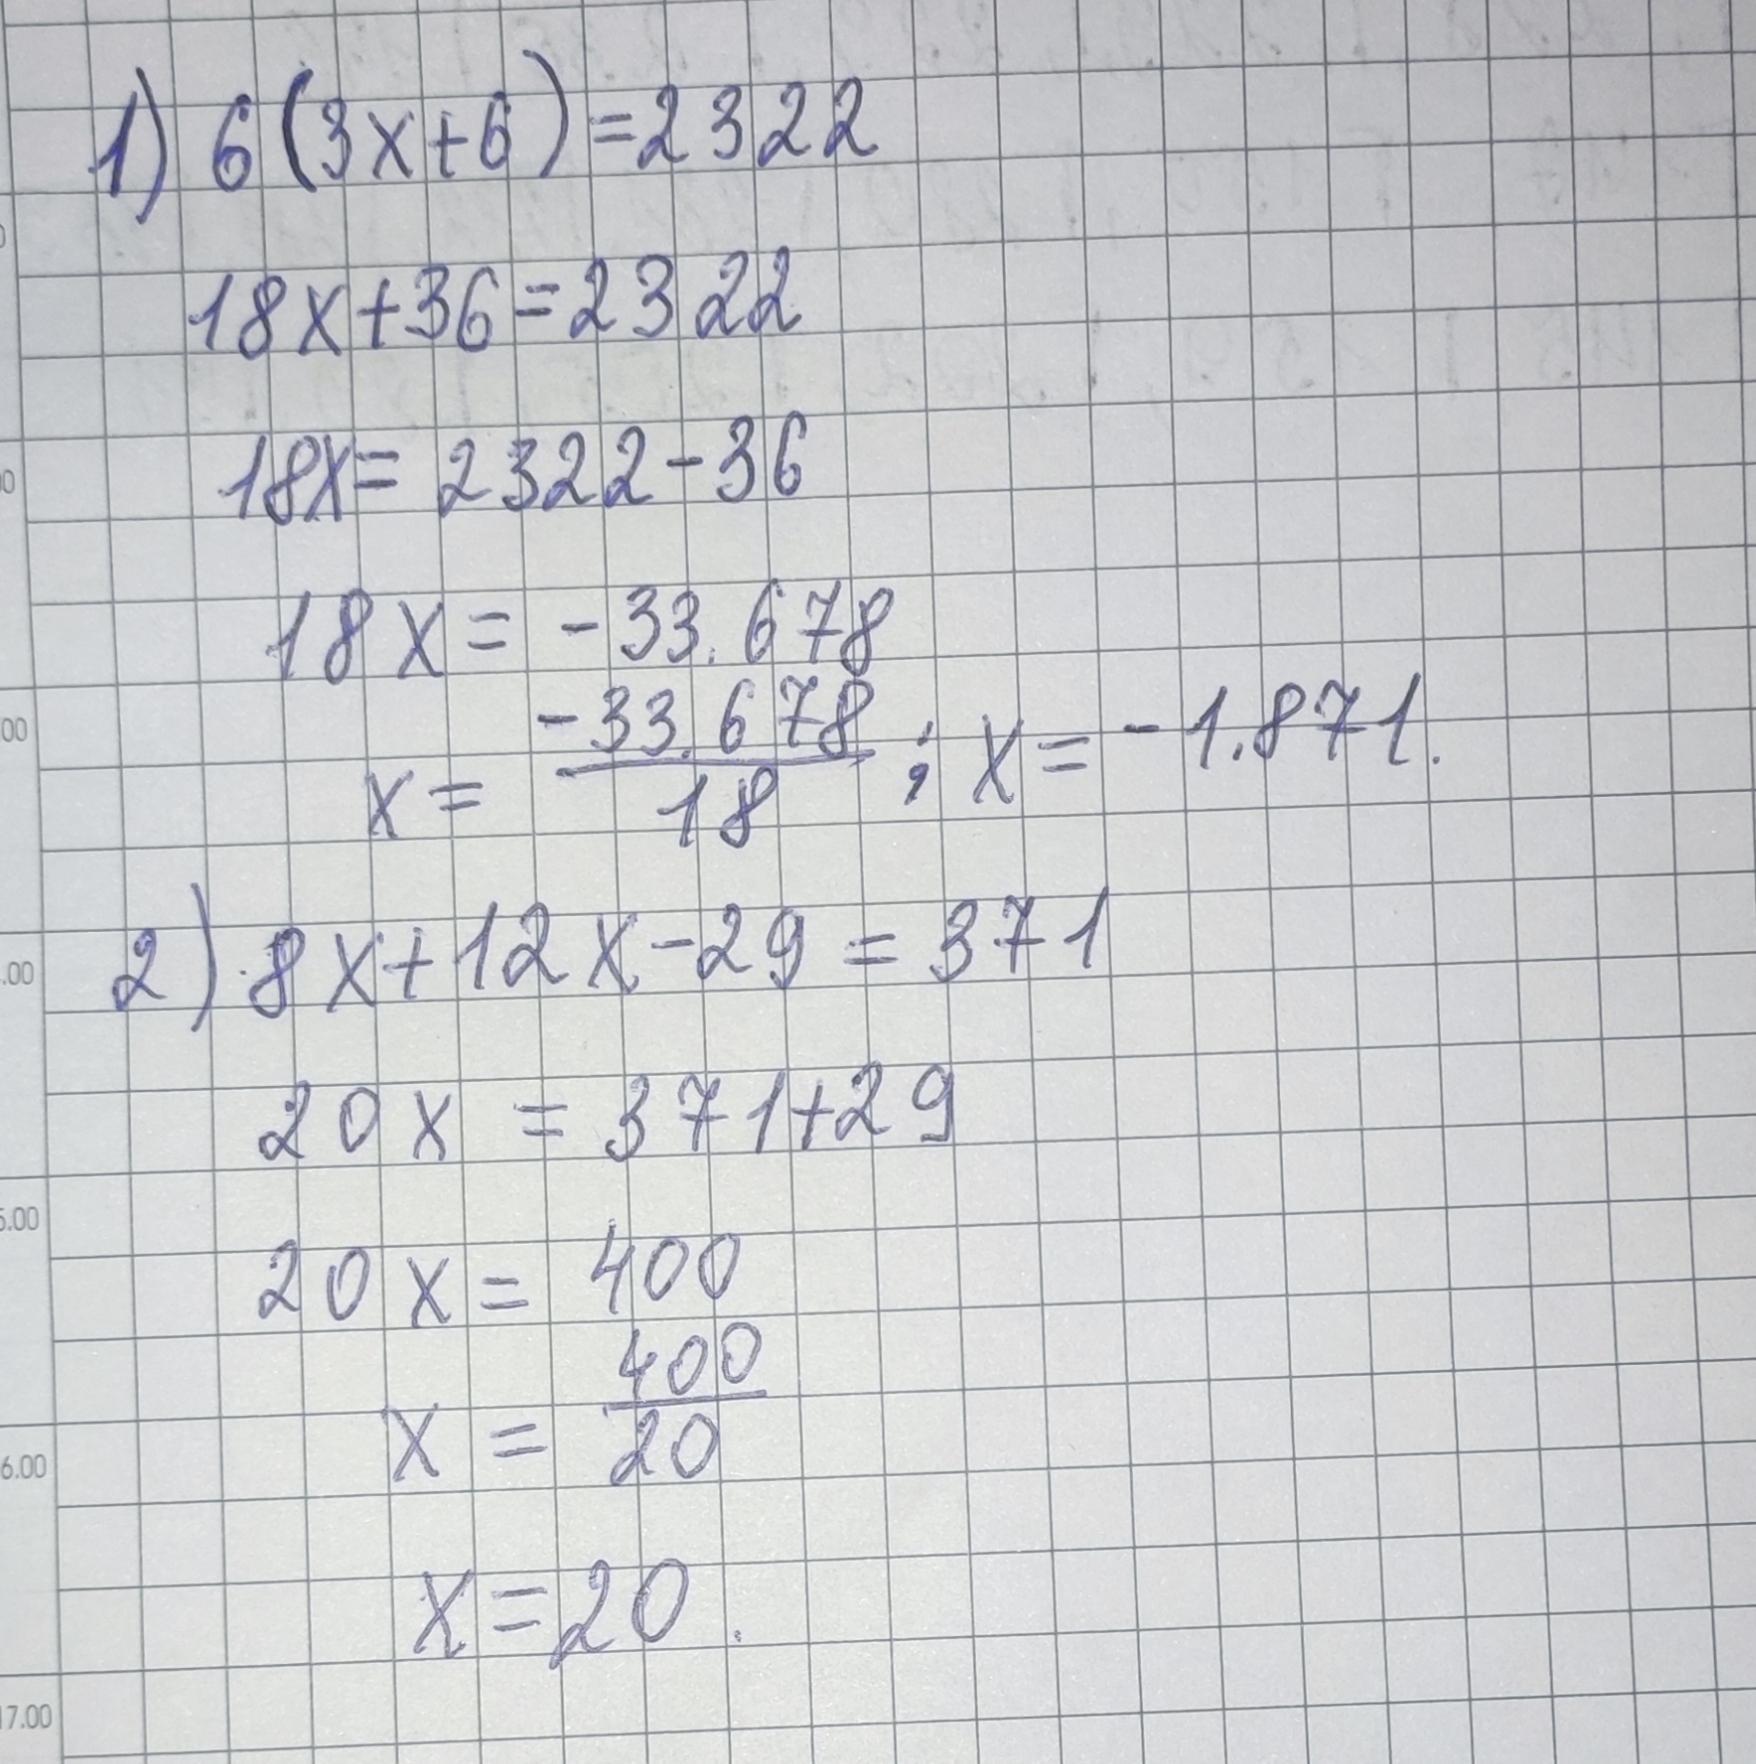 1) 6(3x+6)=2322
18x+36=2322
18x=2322-36
18x=-33.678
x=-33.678/18; x=-1.871.
2) 8x+12x-29=371
20x=371+29
20x=400
x=400/20
x=20.
5.00
6.00
17.00